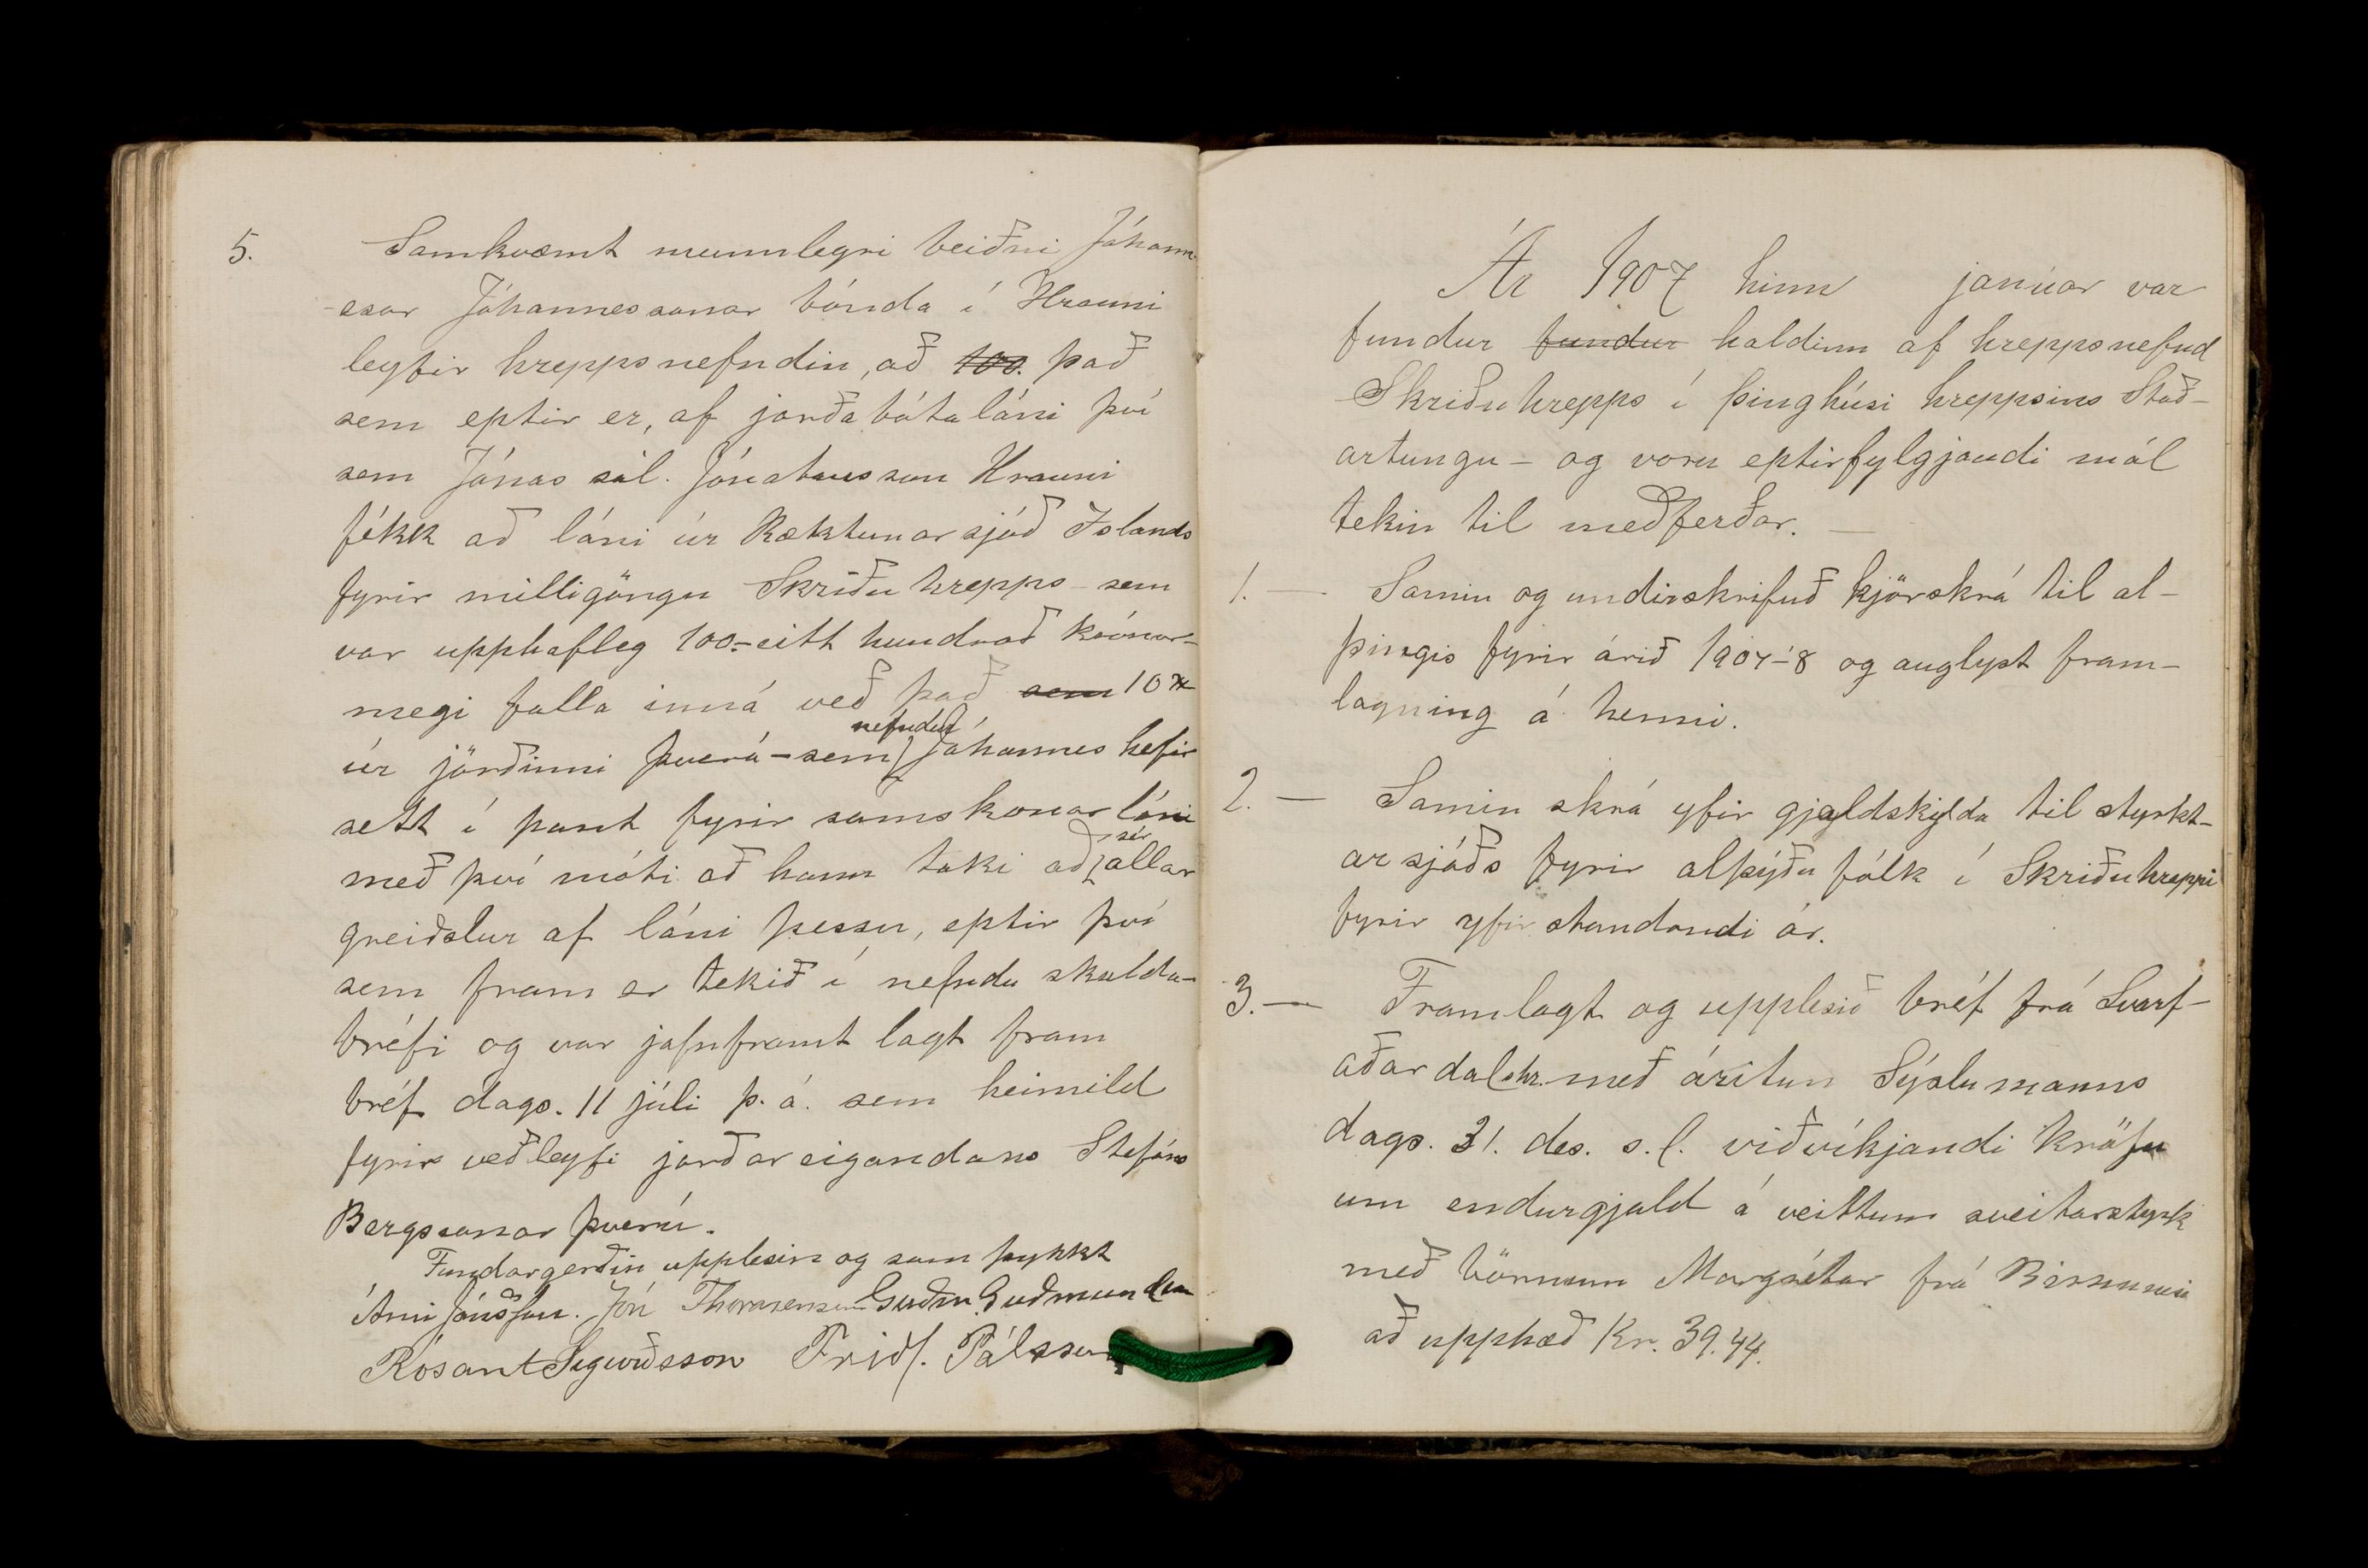 5. Samkvæmt munnlegri beiðni Jóhann-
-esar Jóhannessonar bónda í Hrauni
leyfir hreppsnefndin, að 100. það
sem eptir er, af jarðabótaláni því
sem Jónas sál. Jónatansson Hrauni
fékk að láni úr Ræktunarsjóð Íslands
fyrir milligöngu Skriðuhrepps - sem
var upphafleg 100.- eitt hundrað krónur -
megi falla inná veð það sem 10
úr jörðinni Þverá - sem nefndur Jóhannes hefir
sett í pant fyrir samskonar láni
með því móti að hann taki að sér allar
greiðslur af láni þessu, eptir því
sem fram er tekið í nefndu skulda-
bréfi og var jafnframt lagt fram
bréf dags. 11 júli þ. á. sem heimild
fyrir veðleyfi jarðareigandans Stefáns
Bergssonar Þverá.
Fundargerðin upplesin og samþykkt
Árni Jónsson. Jón Thorarensen Guðm. Guðmundsson
Rósant Sigurðsson Friðf. Pálsson
Ár 1907 hinn januar var
fundur fundur haldinn af hreppsnefnd
Skriðuhrepps í þinghúsi hreppsins Stað-
artungu - og voru eptirfylgjandi mál
tekin til meðferðar. -
1. - Samin og undirskrifuð kjörskrá til al-
þingis fyrir árið 1907-'8 og auglyst fram-
lagning á henni.
2. - Samin skrá yfir gjaldskylda til styrkt-
arsjóðs fyrir alþýðufólk í Skriðuhreppi
fyrir yfirstandandi ár.
3. - Framlagt og upplesið bréf frá Svarf-
aðardalshr. með áritun Sýslumanns
dags. 31. des. s.l. viðvíkjandi kröfu
um endurgjald á veittum sveitarstyrk
með börnum Margrétar frá
að upphæð Kr. 39.44.